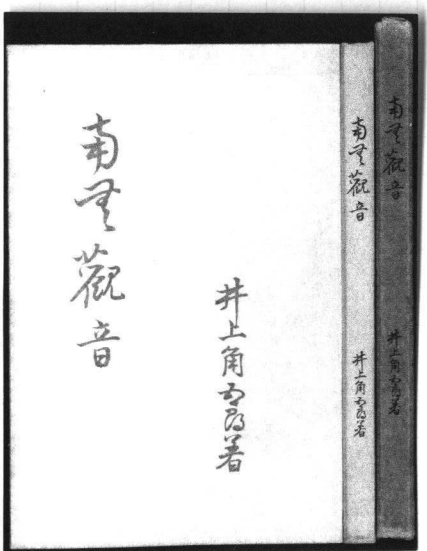 南无觀音
井上角五郎著
南无觀音
井上角五郎著
南无觀音
井上角五郎著